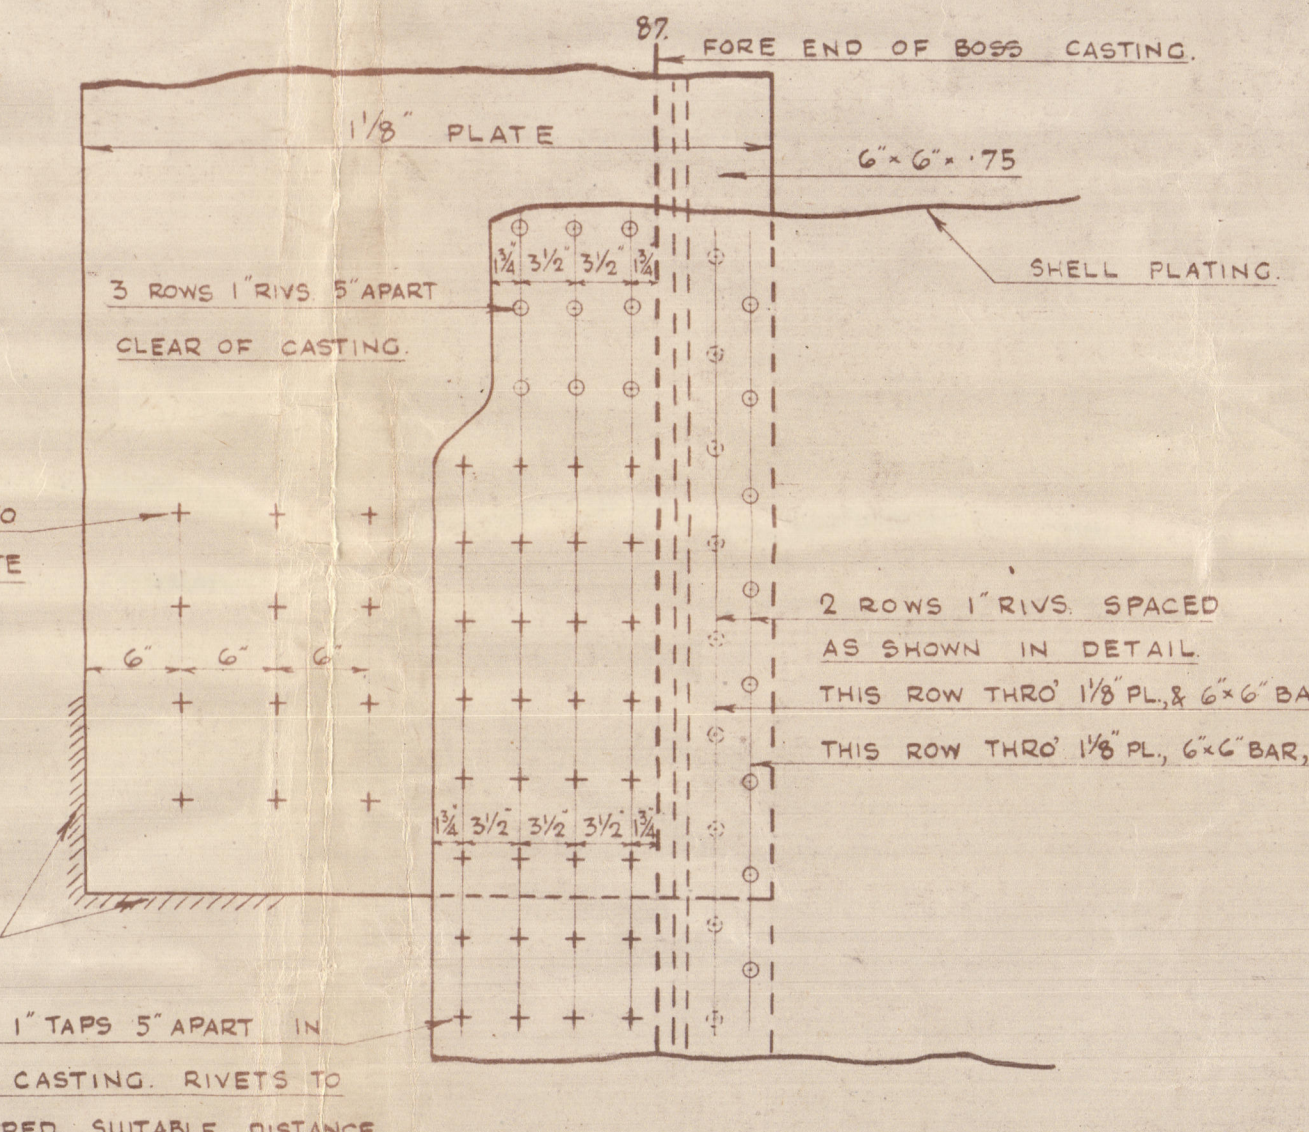 87.
FORE END OF BOSS CASTING.
1 1/8" PLATE
6" × 6" × ·75
1 3/4" 3 1/2" 3 1/2" 1 3/4"
SHELL PLATING.
3 ROWS 1" RIVS. 5" APART
CLEAR OF CASTING.
6" 6" 6"
2 ROWS 1" RIVS. SPACED
AS SHOWN IN DETAIL.
THIS ROW THRO' 1 1/8" PL., & 6" × 6" BA
THIS ROW THRO' 1 1/8" PL., 6" × 6" BAR,
1 3/4" 3 1/2" 3 1/2" 3 1/2" 1 3/4"
1" TAPS 5" APART IN
CASTING. RIVETS TO
SUITABLE DISTANCE